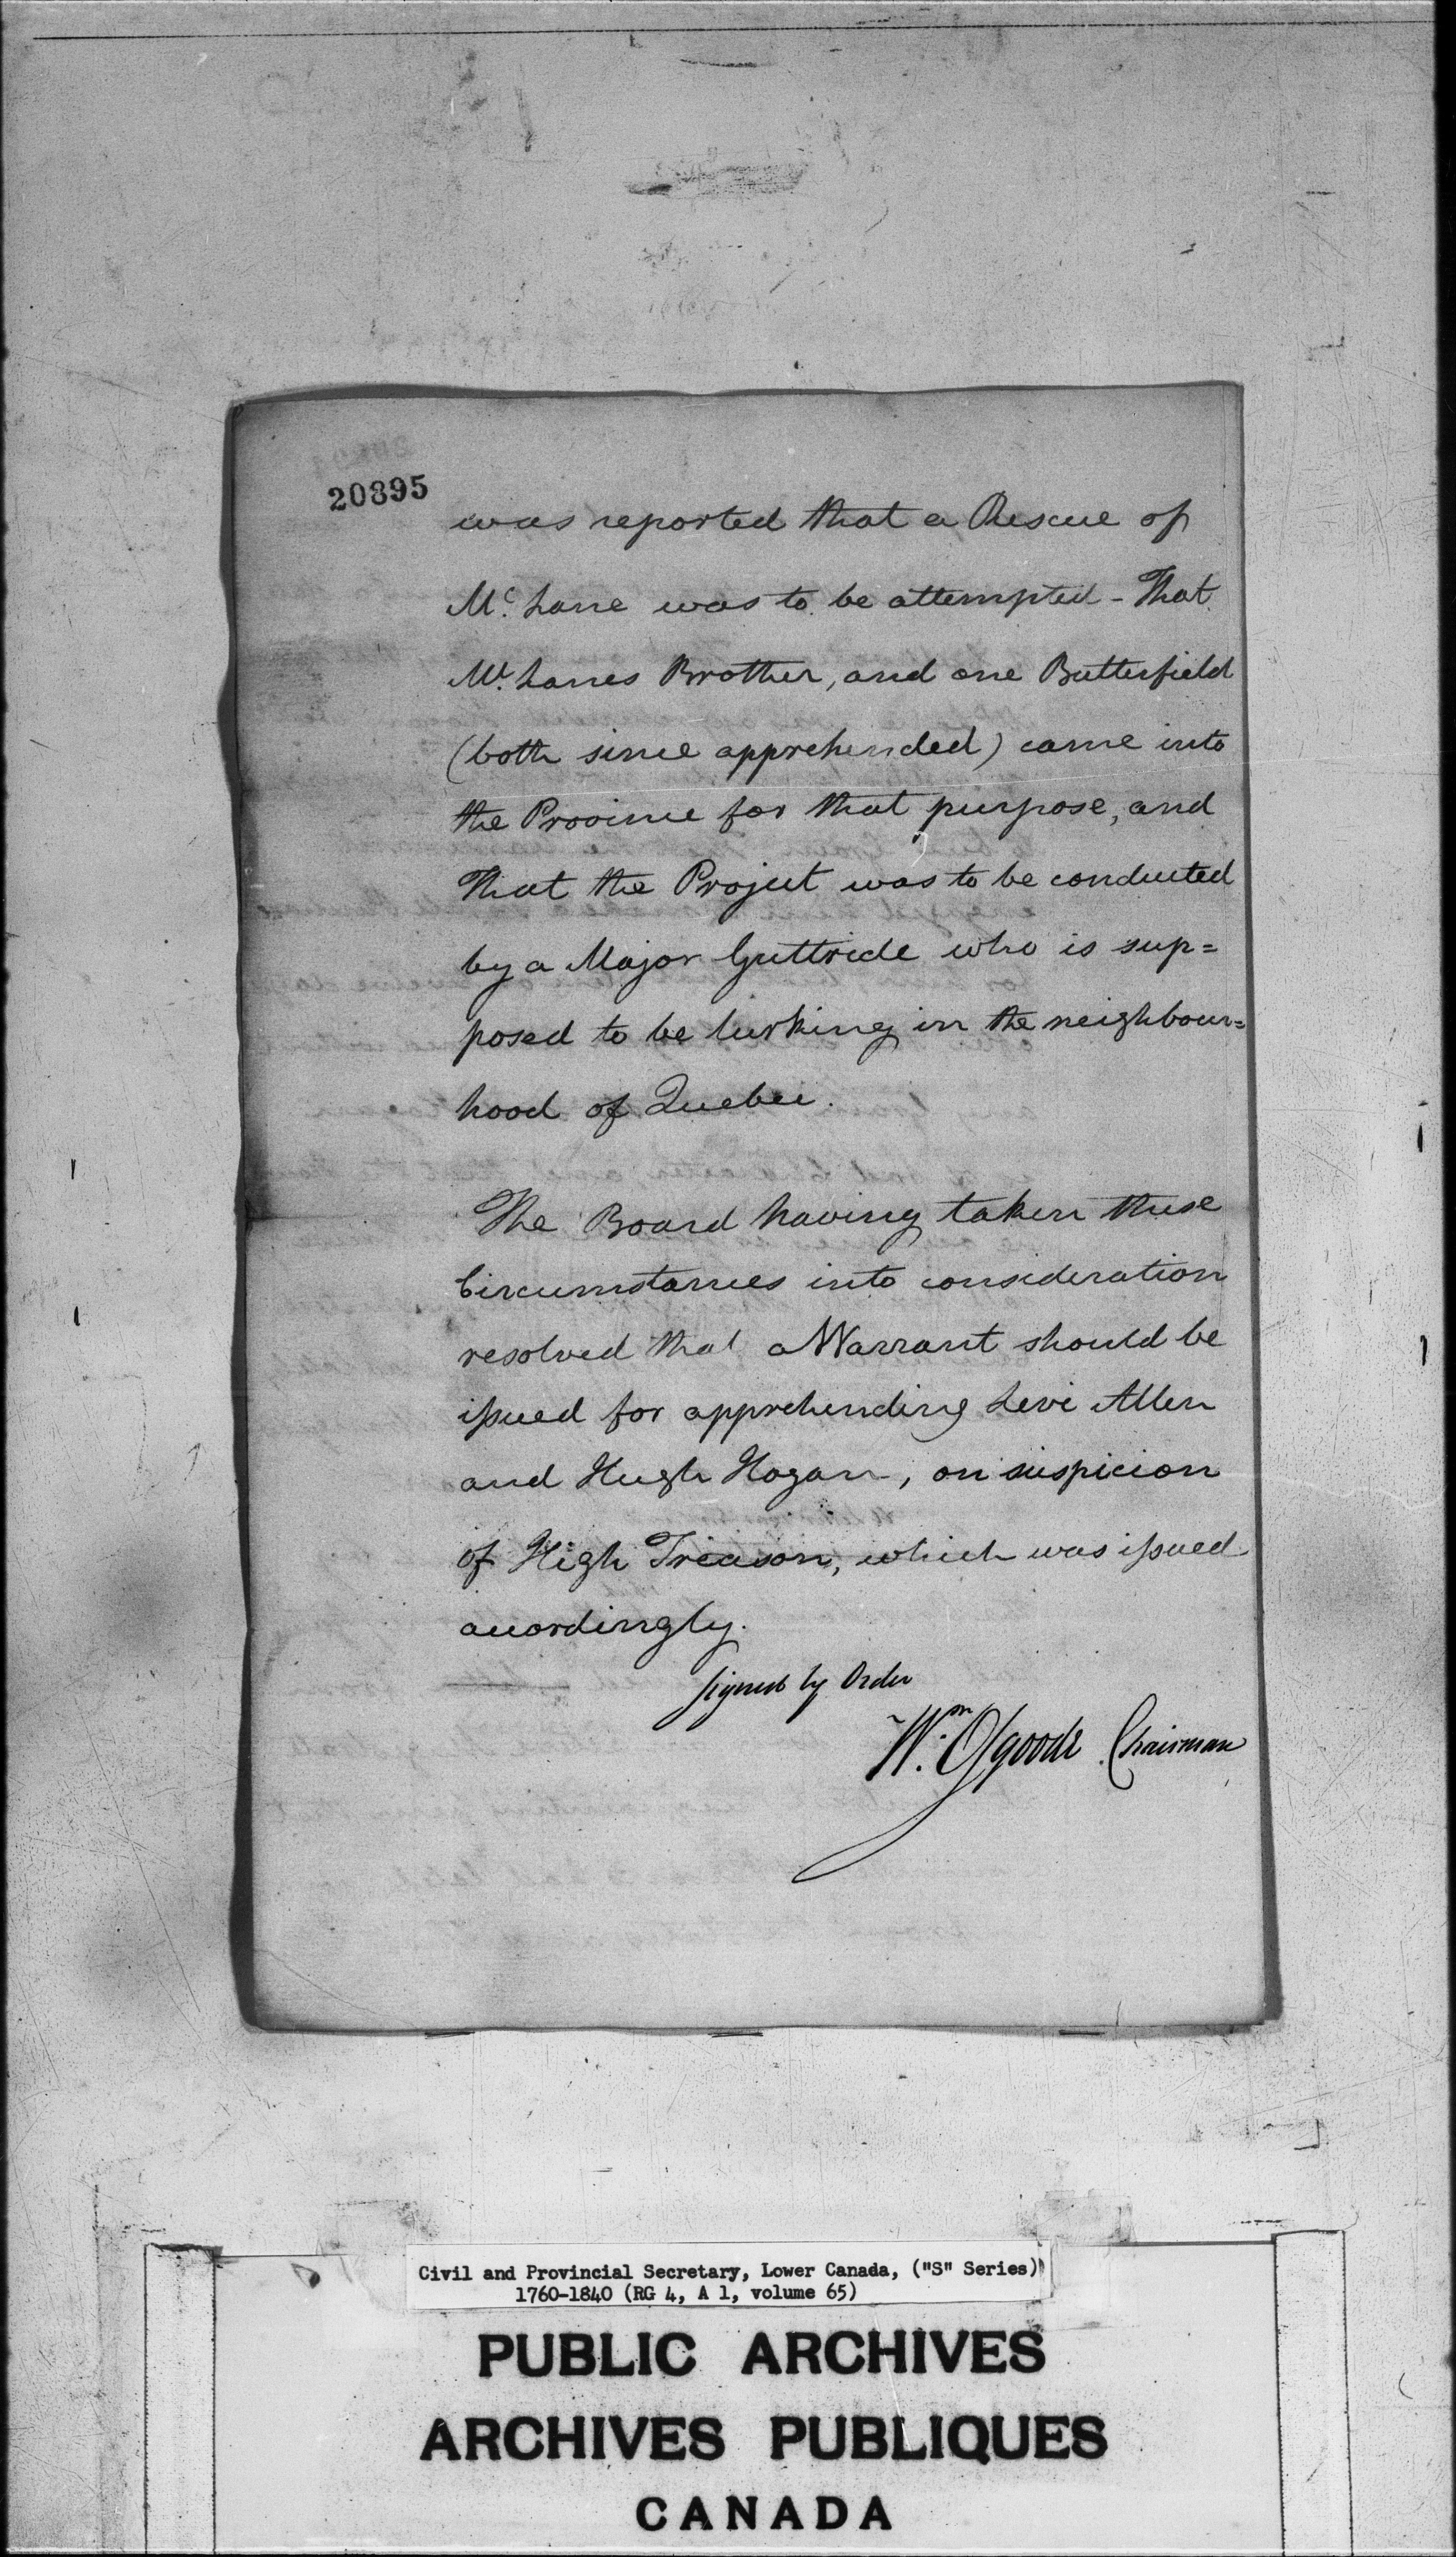 20895
was reported that a Rescue of
Mc. Lane was to be attempted - That
Mc. Lanes Brother, and one Butterfield
(both since apprehended) came into
the Province for that purpose, and
That the Project was to be conducted
by a Major Guttride who is sup=
posed to be lurking in the neighbour=
hood of Quebec.
The Board having taken these
Circumstances into consideration
resolved that a Warrant should be
issued for apprehending Levi Allen
and Hugh Hogan, on suspicion
of High Treason, which was issued
accordingly.
Signed by Order
Wm. Osgoode Chairman
Civil and Provincial Secretary, Lower Canada, ("S" Series)
1760-1840 (RG 4, A 1, volume 65)
PUBLIC ARCHIVES
ARCHIVES PUBLIQUES
CANADA